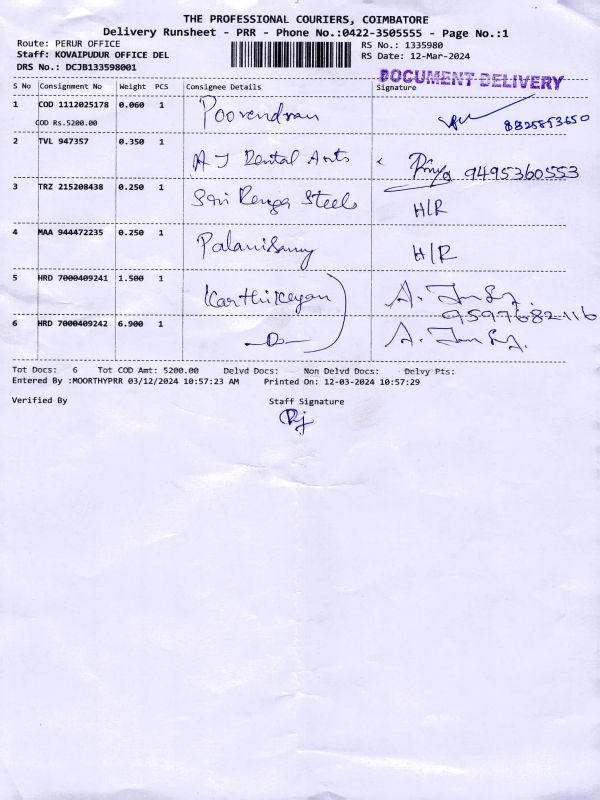 THE PROFESSIONAL COURIERS, COIMBATORE
Delivery Runsheet - PRR - Phone No.:0422-3505555 - Page No.:1
Route: PERUR OFFICE
RS No.: 1335980
Staff: KOVAIPUDUR OFFICE DEL
RS Date: 12-Mar-2024
DRS No.: DCJB133598001
DOCUMENT DELIVERY
S No Consignment No Weight PCS Consignee Details Signature
1 COD 1112025178 0.060 1 Poovendran
COD Rs.5200.00 8825853650
2 TVL 947357 0.350 1 A J Dental Arts Priya 9495360553
3 TRZ 215208438 0.250 1 Sri Renga Steels H/R
4 MAA 944472235 0.250 1 Palanisamy H/R
5 HRD 7000409241 1.500 1 Karthikeyan A.
9597682116
6 HRD 7000409242 6.900 1 -Do- A.
Tot Docs: 6 Tot COD Amt: 5200.00 Delvd Docs: Non Delvd Docs: Delvy Pts:
Entered By :MOORTHYPRR 03/12/2024 10:57:23 AM Printed On: 12-03-2024 10:57:29
Verified By Staff Signature